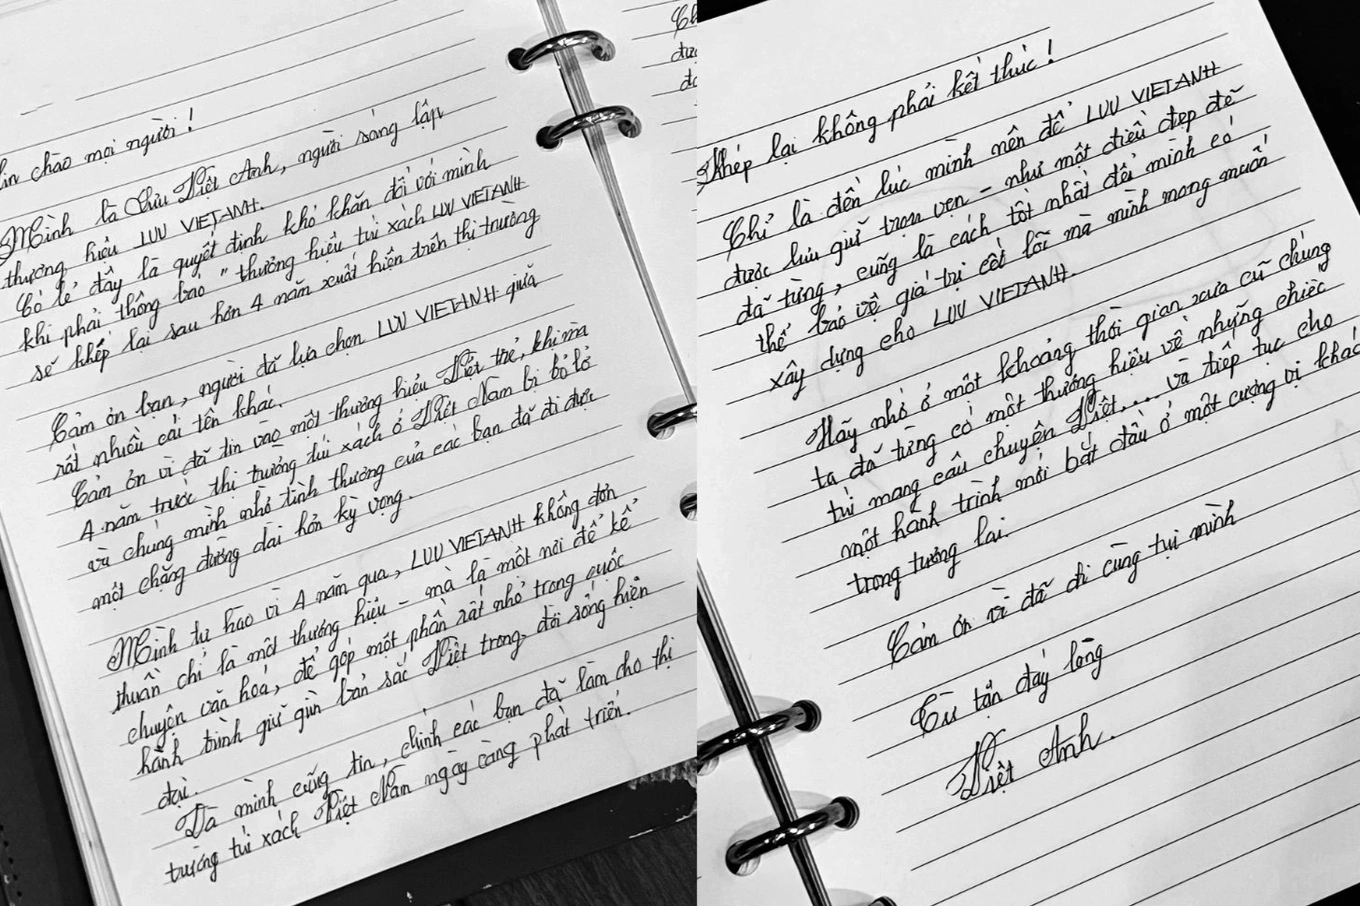 in chào mọi người!
Mình là Lưu Việt Anh, người sáng lập
thương hiệu LUU VIETANH.
Có lẽ đây là quyết định khó khăn đối với mình
khi phải thông báo " thương hiệu túi xách LUU VIETANH
sẽ khép lại sau hơn 4 năm xuất hiện trên thị trường
Cảm ơn bạn, người đã lựa chọn LUU VIETANH giữa
rất nhiều cái tên khác.
Cảm ơn vì đã tin vào một thương hiệu Việt trẻ, khi mà
4 năm trước thị trường túi xách ở Việt Nam bị bỏ lỡ
và chúng mình nhờ tình thương của các bạn đã đi được
một chặng đường dài hơn kỳ vọng.
Mình tự hào vì 4 năm qua, LUU VIETANH không đơn
thuần chỉ là một thương hiệu - mà là một nơi để kể
chuyện văn hoá, để góp một phần rất nhỏ trong cuộc
hành trình giữ gìn bản sắc Việt trong đời sống hiện
đại.
Và mình cũng tin, chính các bạn đã làm cho thị
trường túi xách Việt Nam ngày càng phát triển.
Ch
đượ
đã
Khép lại không phải kết thúc!
Chỉ là đến lúc mình nên để LUU VIETANH
được lưu giữ trọn vẹn - như một điều đẹp đẽ
đã từng, cũng là cách tốt nhất để mình có
thể bảo vệ giá trị cốt lõi mà mình mong muốn
xây dựng cho LUU VIETANH.
Hãy nhớ ở một khoảng thời gian xưa cũ chúng
ta đã từng có một thương hiệu về những chiếc
túi mang câu chuyện Việt..... và tiếp tục cho
một hành trình mới bắt đầu ở một cương vị khác
trong tương lai.
Cảm ơn vì đã đi cùng tụi mình
Từ tận đáy lòng
Việt Anh.